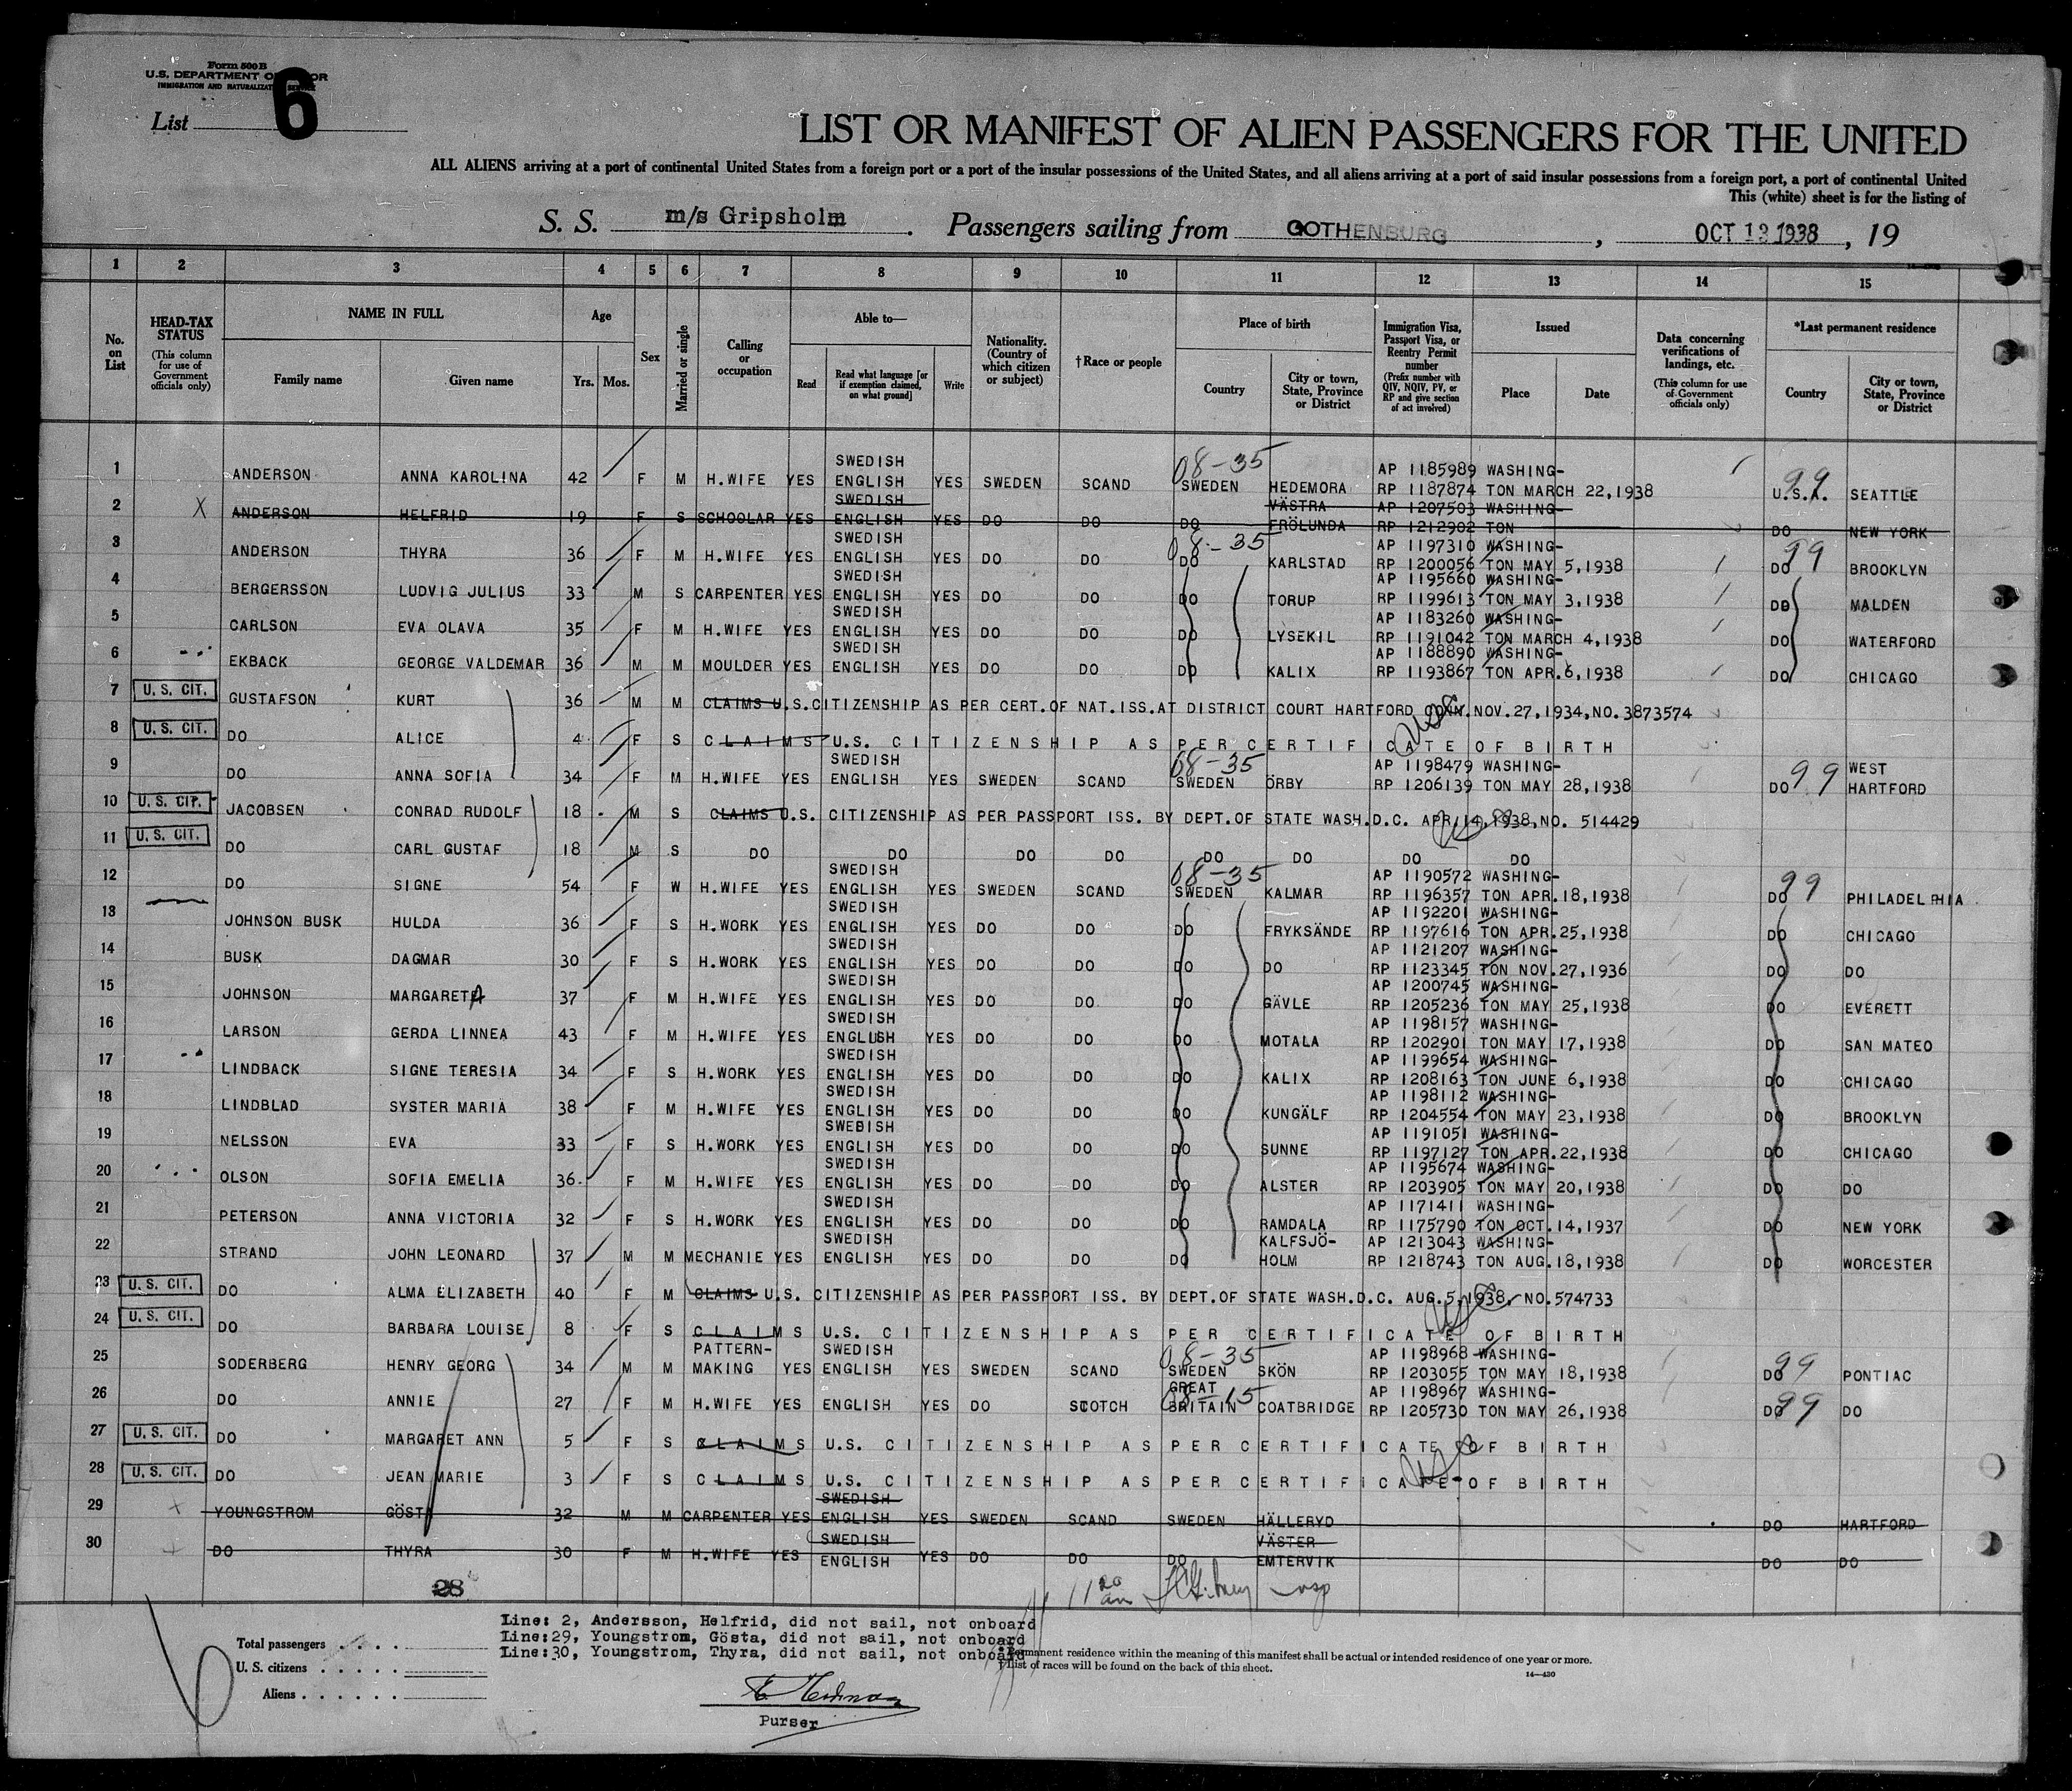 Form 500 B
U.S. DEPARTMENT OF LABOR
IMMIGRATION AND NATURALIZATION SERVICE
List 6
LIST OR MANIFEST OF ALIEN PASSENGERS FOR THE UNITED
ALL ALIENS arriving at a port of continental United States from a foreign port or a port of the insular possessions of the United States, and all aliens arriving at a port of said insular possessions from a foreign port, a port of continental United
This (white) sheet is for the listing of
S. S. m/s Gripsholm. Passengers sailing from GOTHENBURG, OCT 13 1938, 19
1 2 3 4 5 6 7 8 9 10 11 12 13 14 15
No. on List
HEAD-TAX STATUS (This column for use of Government officials only)
NAME IN FULL Family name Given name
Age Yrs. Mos.
Sex
Married or single
Calling or occupation
Able to— Read Read what language [or if exemption claimed, on what ground] Write
Nationality. (Country of which citizen or subject)
†Race or people
Place of birth Country City or town, State, Province or District
Immigration Visa, Passport Visa, or Reentry Permit number (Prefix number with QIV, NQIV, PV, or RP and give section of act involved)
Issued Place Date
Data concerning verifications of landings, etc. (This column for use of Government officials only)
*Last permanent residence Country City or town, State, Province or District
1 ANDERSON ANNA KAROLINA 42 F M H.WIFE YES SWEDISH ENGLISH YES SWEDEN SCAND 08-35 SWEDEN HEDEMORA AP 1185989 RP 1187874 WASHINGTON MARCH 22,1938 99 U.S.A. SEATTLE
2 X ANDERSON HELFRID 19 F S SCHOOLAR YES SWEDISH ENGLISH YES DO DO DO VÄSTRA FRÖLUNDA AP 1207503 RP 1212902 WASHING-TON DO NEW YORK
3 ANDERSON THYRA 36 F M H.WIFE YES SWEDISH ENGLISH YES DO DO 08-35 DO KARLSTAD AP 1197310 RP 1200056 WASHING-TON MAY 5,1938 99 DO BROOKLYN
4 BERGERSSON LUDVIG JULIUS 33 M S CARPENTER YES SWEDISH ENGLISH YES DO DO DO TORUP AP 1195660 RP 1199613 WASHING-TON MAY 3,1938 DO MALDEN
5 CARLSON EVA OLAVA 35 F M H.WIFE YES SWEDISH ENGLISH YES DO DO DO LYSEKIL AP 1183260 RP 1191042 WASHING-TON MARCH 4,1938 DO WATERFORD
6 EKBACK GEORGE VALDEMAR 36 M M MOULDER YES SWEDISH ENGLISH YES DO DO DO KALIX AP 1188890 RP 1193867 WASHING-TON APR.6,1938 DO CHICAGO
7 U. S. CIT. GUSTAFSON KURT 36 M M CLAIMS U.S.CITIZENSHIP AS PER CERT.OF NAT.ISS.AT DISTRICT COURT HARTFORD CONN.NOV.27,1934,NO.3873574
8 U. S. CIT. DO ALICE 4 F S CLAIMS U.S. CITIZENSHIP AS PER CERTIFICATE OF BIRTH
9 DO ANNA SOFIA 34 F M H.WIFE YES SWEDISH ENGLISH YES SWEDEN SCAND 08-35 SWEDEN ÖRBY AP 1198479 RP 1206139 WASHING-TON MAY 28,1938 DO 99 WEST HARTFORD
10 U. S. CIT. JACOBSEN CONRAD RUDOLF 18 M S CLAIMS U.S. CITIZENSHIP AS PER PASSPORT ISS. BY DEPT.OF STATE WASH.D.C. APR.14,1938,NO. 514429
11 U. S. CIT. DO CARL GUSTAF 18 M S DO DO DO DO DO DO DO DO
12 DO SIGNE 54 F W H.WIFE YES SWEDISH ENGLISH YES SWEDEN SCAND 08-35 SWEDEN KALMAR AP 1190572 RP 1196357 WASHING-TON APR.18,1938 DO 99 PHILADELPHIA
13 JOHNSON BUSK HULDA 36 F S H.WORK YES SWEDISH ENGLISH YES DO DO DO FRYKSÄNDE AP 1192201 RP 1197616 WASHING-TON APR.25,1938 DO CHICAGO
14 BUSK DAGMAR 30 F S H.WORK YES SWEDISH ENGLISH YES DO DO DO DO AP 1121207 RP 1123345 WASHING-TON NOV.27,1936 DO DO
15 JOHNSON MARGARETA 37 F M H.WIFE YES SWEDISH ENGLISH YES DO DO DO GÄVLE AP 1200745 RP 1205236 WASHING-TON MAY 25,1938 DO EVERETT
16 LARSON GERDA LINNEA 43 F M H.WIFE YES SWEDISH ENGLUSH YES DO DO DO MOTALA AP 1198157 RP 1202901 WASHING-TON MAY 17,1938 DO SAN MATEO
17 LINDBACK SIGNE TERESIA 34 F S H.WORK YES SWEDISH ENGLISH YES DO DO DO KALIX AP 1199654 RP 1208163 WASHING-TON JUNE 6,1938 DO CHICAGO
18 LINDBLAD SYSTER MARIA 38 F M H.WIFE YES SWEDISH ENGLISH YES DO DO DO KUNGÄLF AP 1198112 RP 1204554 WASHING-TON MAY 23,1938 DO BROOKLYN
19 NELSSON EVA 33 F S H.WORK YES SWEBISH ENGLISH YES DO DO DO SUNNE AP 1191051 RP 1197127 WASHING-TON APR.22,1938 DO CHICAGO
20 OLSON SOFIA EMELIA 36 F M H.WIFE YES SWEDISH ENGLISH YES DO DO DO ALSTER AP 1195674 RP 1203905 WASHING-TON MAY 20,1938 DO DO
21 PETERSON ANNA VICTORIA 32 F S H.WORK YES SWEDISH ENGLISH YES DO DO DO RAMDALA AP 1171411 RP 1175790 WASHING-TON OCT.14,1937 DO NEW YORK
22 STRAND JOHN LEONARD 37 M M MECHANIE YES SWEDISH ENGLISH YES DO DO DO KALFSJÖ-HOLM AP 1213043 RP 1218743 WASHING-TON AUG.18,1938 DO WORCESTER
23 U. S. CIT. DO ALMA ELIZABETH 40 F M CLAIMS U.S. CITIZENSHIP AS PER PASSPORT ISS. BY DEPT.OF STATE WASH.D.C. AUG.5,1938, NO.574733
24 U. S. CIT. DO BARBARA LOUISE 8 F S CLAIMS U.S. CITIZENSHIP AS PER CERTIFICATE OF BIRTH
25 SODERBERG HENRY GEORG 34 M M PATTERN-MAKING YES SWEDISH ENGLISH YES SWEDEN SCAND 08-35 SWEDEN SKÖN AP 1198968 RP 1203055 WASHING-TON MAY 18,1938 DO 99 PONTIAC
26 DO ANNIE 27 F M H.WIFE YES ENGLISH YES DO SCOTCH 08-15 GREAT BRITAIN COATBRIDGE AP 1198967 RP 1205730 WASHING-TON MAY 26,1938 DO 99 DO
27 U. S. CIT. DO MARGARET ANN 5 F S CLAIMS U.S. CITIZENSHIP AS PER CERTIFICATE OF BIRTH
28 U. S. CIT. DO JEAN MARIE 3 F S CLAIMS U.S. CITIZENSHIP AS PER CERTIFICATE OF BIRTH
29 YOUNGSTROM GÖSTA 32 M M CARPENTER YES SWEDISH ENGLISH YES SWEDEN SCAND SWEDEN HÄLLERYD DO HARTFORD
30 DO THYRA 30 F M H.WIFE YES SWEDISH ENGLISH YES DO DO DO VÄSTER EMTERVIK DO DO
28
Line: 2, Andersson, Helfrid, did not sail, not onboard
Line:29, Youngstrom, Gösta, did not sail, not onboard
Line:30, Youngstrom, Thyra, did not sail, not onboard
Total passengers
U. S. citizens
Aliens
*Permanent residence within the meaning of this manifest shall be actual or intended residence of one year or more.
†List of races will be found on the back of this sheet.
14—430
Purser